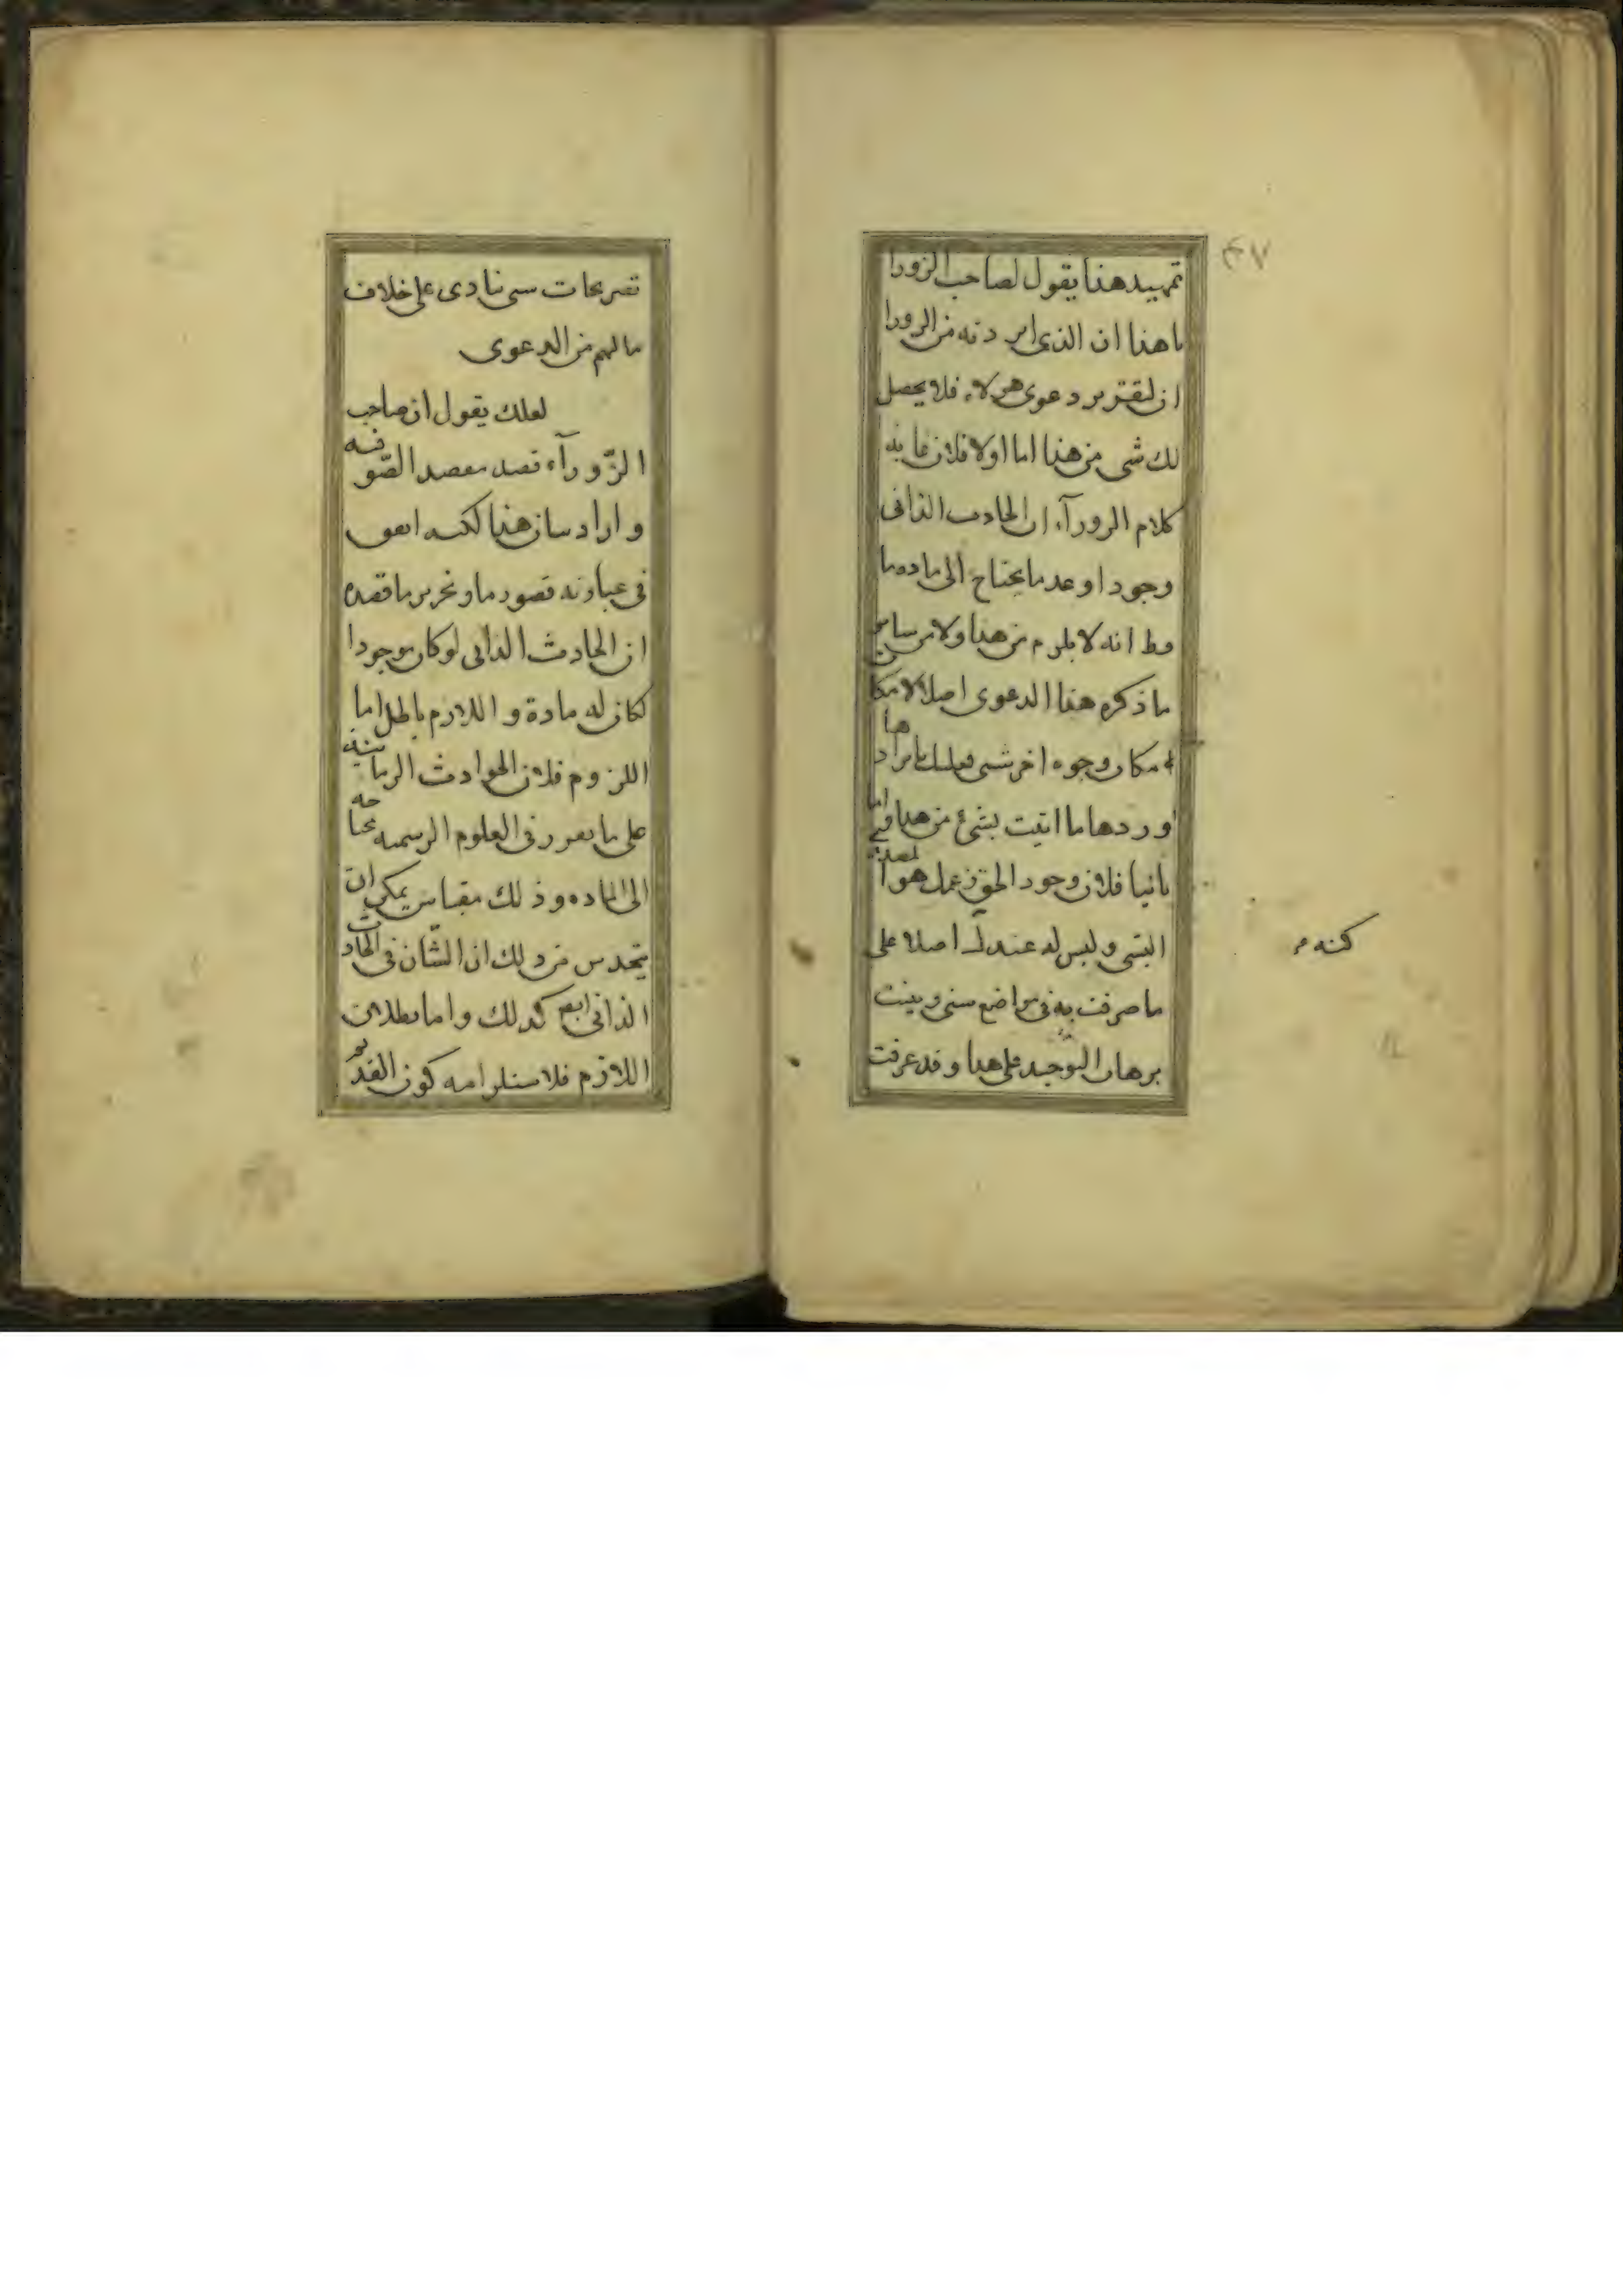 ٤٧
تمهيد هذا يقول لصاحب الزورا
ما هذا ان الذى اردته من الزورا
ان لتقرير دعوى هولاء فلا يحصل
لك شى من هذا اما اولا فلان غايه
كلام الزورآء ان الحادث الذاتى
وجودا وعدما يحتاج الى ماده ما
وط انه لا يلزم من هذا ولا من ساير
ما ذكره هذا الدعوى اصلا لامكا
امكان وجوه اخر شتى فعليك بايرادها
وردها ما اتيت بشئ من هذا واما
ثانيا فلان وجود الحق زعمك هو المصدر
البتى وليس له عندك اصلا على
كنه م
ما صرفت به فى مواضع ستى وبينت
برهان التوحيد على هذا وقد عرفت
تصريحات ستى تنادى على خلاف
مالهم من الدعوى
لعلك يقول ان صاحب
الزّورآء قصد مقصد الصّوفيه
واراد بيان هذا لكنه اتفق
فى عبارته قصور ما وتحرير ما قصده
ان الحادث الذاتى لو كان موجودا
لكان له مادة واللازم باطل اما
اللزوم فلان الحوادث الزمانيه
على ما تقرر فى العلوم الرسميه محتاجه
الى الماده وذلك مقياس يمكن ان
يتحدس من ذلك ان الشّان فى الحادث
الذاتى ايضا كذلك واما بطلان
اللازم فلاستلزامه كون القديم